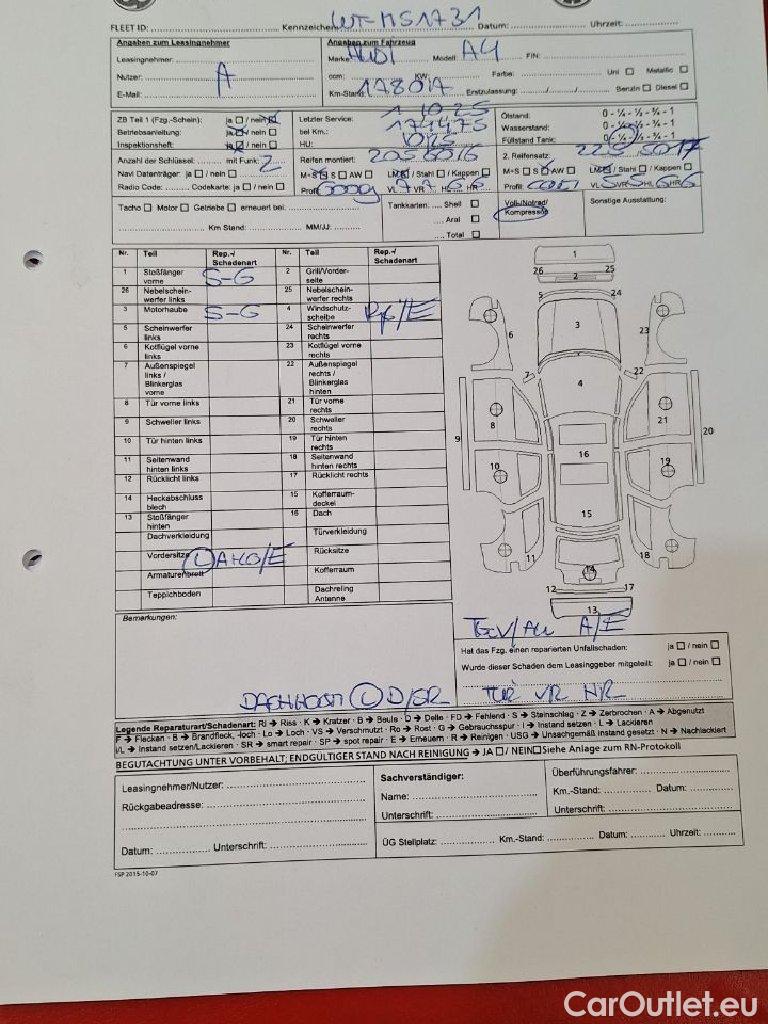 FLEET ID: Kennzeichen: WT-MS1731 Datum: Uhrzeit:
Angaben zum Leasingnehmer
Leasingnehmer:
Nutzer: A
E-Mail:
Angaben zum Fahrzeug
Marke: AUDI Modell: A4 FIN:
ccm: KW: Farbe: Uni Metallic
Km-Stand: 178017 Erstzulassung: Benzin Diesel
ZB Teil 1 (Fzg.-Schein): ja / nein
Betriebsanleitung: ja / nein
Inspektionsheft: ja / nein
Anzahl der Schlüssel: mit Funk: 2
Navi Datenträger: ja / nein
Radio Code: Codekarte: ja / nein
Letzter Service: 1 10 25
bei Km.: 174475
HU:
Reifen montiert: 205 60 16
M+S S AW LM / Stahl / Kappen
Profil VL VR HL HR
Ölstand: 0 - ¼ - ½ - ¾ - 1
Wasserstand: 0 - ¼ - ½ - ¾ - 1
Füllstand Tank: 0 - ¼ - ½ - ¾ - 1
2. Reifensatz: 225 50 17
M+S S AW LM / Stahl / Kappen
Profil: VL 5 VR 5 HL 6 HR 6
Tacho Motor Getriebe erneuert bei:
Km Stand: MM/JJ:
Tankkarten: Shell
Aral
Total
Voll-/Notrad/
Kompressor
Sonstige Ausstattung:
Nr. Teil Rep.-/ Schadenart Nr. Teil Rep.-/ Schadenart
1 Stoßfänger vorne S-G 2 Grill/Vorder- seite
26 Nebelschein- werfer links 25 Nebelschein- werfer rechts
3 Motorhaube S-G 4 Windschutz- scheibe
5 Scheinwerfer links 24 Scheinwerfer rechts
6 Kotflügel vorne links 23 Kotflügel vorne rechts
7 Außenspiegel links / Blinkerglas vorne 22 Außenspiegel rechts / Blinkerglas hinten
8 Tür vorne links 21 Tür vorne rechts
9 Schweller links 20 Schweller rechts
10 Tür hinten links 19 Tür hinten rechts
11 Seitenwand hinten links 18 Seitenwand hinten rechts
12 Rücklicht links 17 Rücklicht rechts
14 Heckabschluss blech 15 Kofferraum- deckel
13 Stoßfänger hinten 16 Dach
Dachverkleidung Türverkleidung
Vordersitze Rücksitze
Armaturenbrett Kofferraum
Teppichboden Dachreling Antenne
1
26 2 25
5 24
6 3 23
7 4 22
8 21
9 16 20
10 19
15
11 14 18
12 17
13
A/E
Bemerkungen:
Hat das Fzg. einen reparierten Unfallschaden: ja / nein
Wurde dieser Schaden dem Leasinggeber mitgeteilt: ja / nein
TÜR VR HR
Legende Reparaturart/Schadenart: Ri → Riss · K → Kratzer · B → Beule · D → Delle · FD → Fehlend · S → Steinschlag · Z → Zerbrochen · A → Abgenutzt
F → Flecken · B → Brandfleck, -loch · Lo → Loch · VS → Verschmutzt · Ro → Rost · G → Gebrauchsspur · I → Instand setzen · L → Lackieren
I/L → Instand setzen/Lackieren · SR → smart repair · SP → spot repair · E → Erneuern · R → Reinigen · USG → Unsachgemäß instand gesetzt · N → Nachlackiert
BEGUTACHTUNG UNTER VORBEHALT; ENDGÜLTIGER STAND NACH REINIGUNG → JA / NEIN Siehe Anlage zum RN-Protokoll
Leasingnehmer/Nutzer:
Rückgabeadresse:
Datum: Unterschrift:
Sachverständiger:
Name:
Unterschrift:
Überführungsfahrer:
Km.-Stand: Datum:
Unterschrift:
ÜG Stellplatz: Km.-Stand: Datum: Uhrzeit:
FSP 2015-10-07
CarOutlet.eu